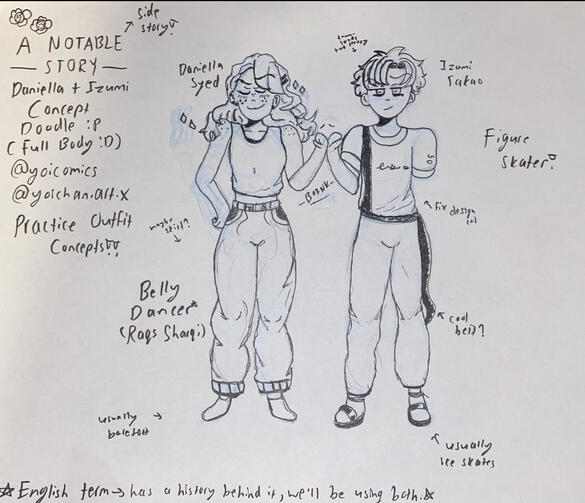 side
story
A NOTABLE
— STORY —
Daniella + Izumi
Concept
Doodle :P
(Full Body :D)
@yoicomics
@yoichan.art.x
Practice Outfit
Concepts
Daniella
Syed
Izumi
Takao
Figure
Skater
fix design
cool
belt?
usually
ice skates
Belly
Dancer*
(Raqs Sharqi)
usually
barefoot
☆ English term → has a history behind it, we'll be using both ☆